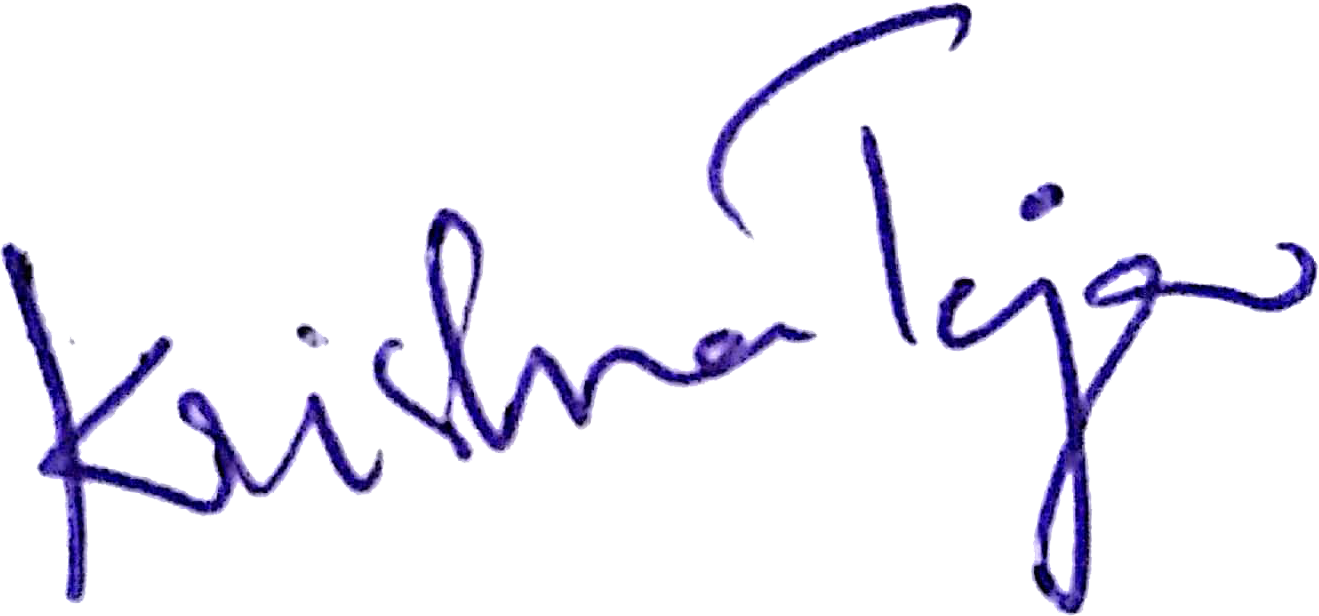 Krishna Teja